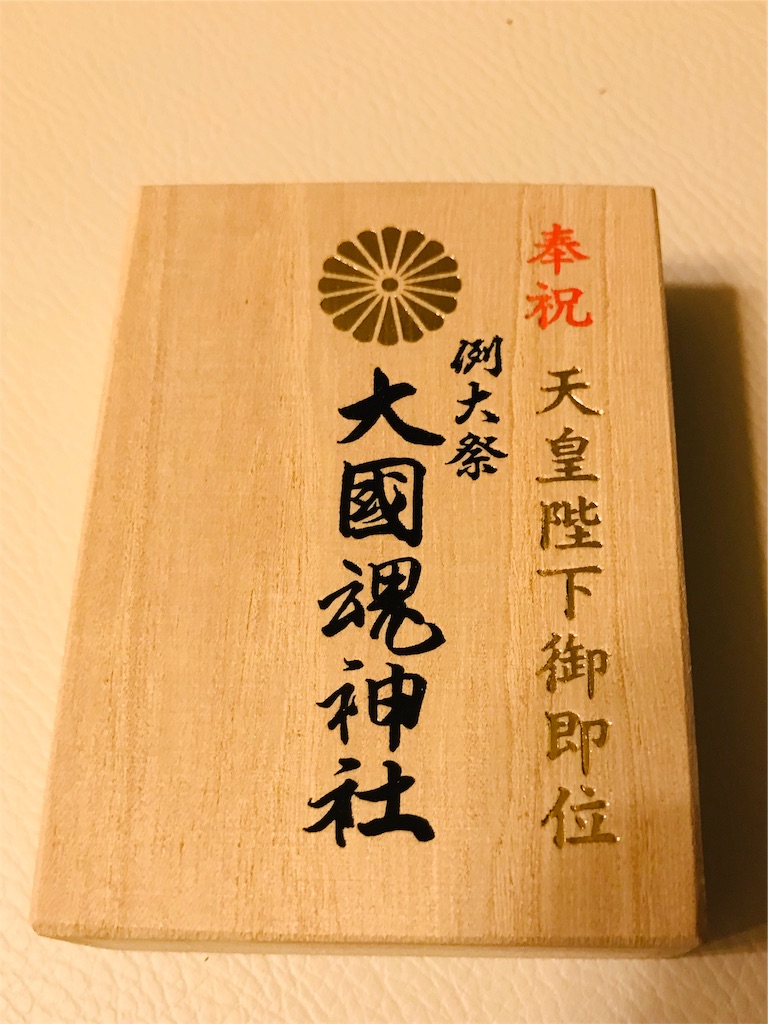 奉祝 天皇陛下御即位
例大祭
大國魂神社